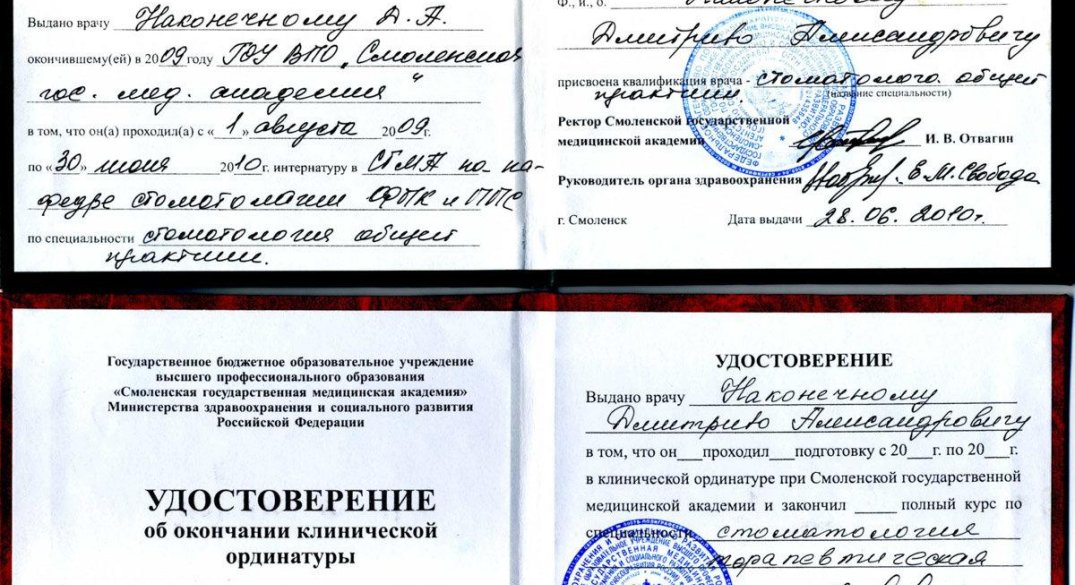 Выдано врачу Наконечному Д. А.
окончившему(ей) в 2009 году ГОУ ВПО „Смоленская
гос. мед. академия“
в том, что он(а) проходил(а) с «1» августа 2009г.
по «30» июня 2010г. интернатуру в СГМА на ка-
федре стоматологии ФПК и ППС
по специальности стоматология общей
практики.
Ф., и., о. Наконечному
Дмитрию Александровичу
присвоена квалификация врача - стоматолога общей
практики. (название специальности)
Ректор Смоленской государственной
медицинской академии И. В. Отвагин
Руководитель органа здравоохранения Е. М. Свобода
г. Смоленск Дата выдачи 28.06.2010г.
Государственное бюджетное образовательное учреждение
высшего профессионального образования
«Смоленская государственная медицинская академия»
Министерства здравоохранения и социального развития
Российской Федерации
УДОСТОВЕРЕНИЕ
об окончании клинической
ординатуры
УДОСТОВЕРЕНИЕ
Выдано врачу Наконечному
Дмитрию Александровичу
в том, что он___проходил___подготовку с 20___г. по 20___г.
в клинической ординатуре при Смоленской государственной
медицинской академии и закончил _____ полный курс по
специальности стоматология
терапевтическая